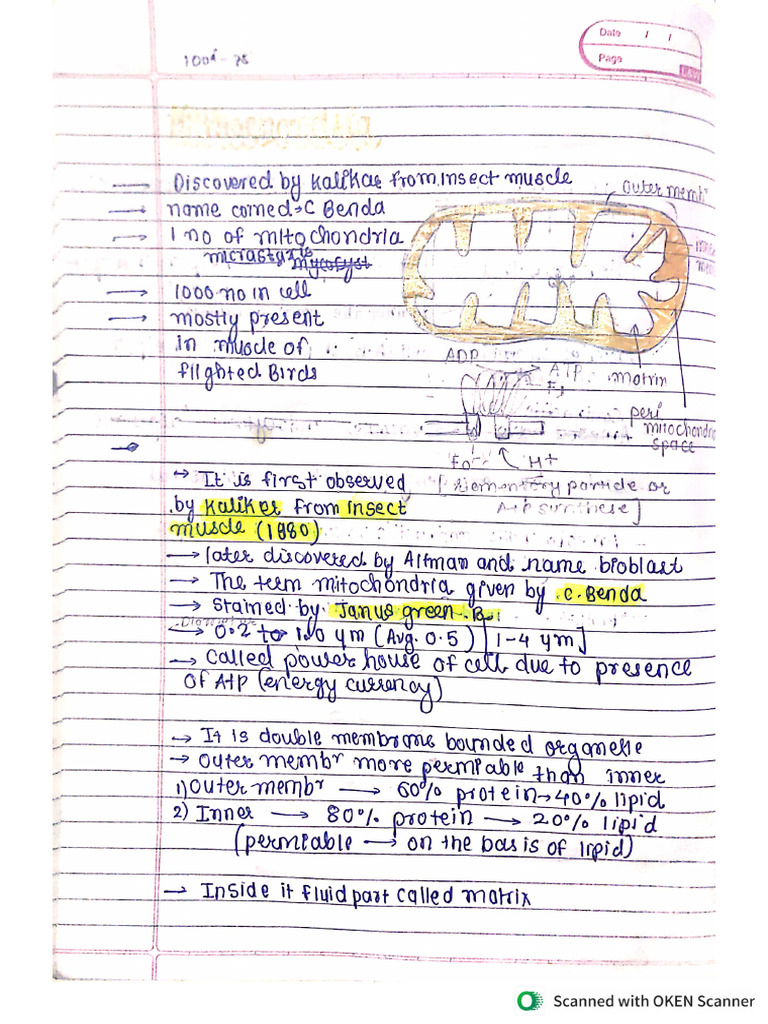 Date / /
Page
Discovered by Kalikar from insect muscle
outer memb
name corned → C Benda
1 no of mitochondria
1000 no in cell
mostly present
in muscle of
flighted Birds
ADP
ATP
F1
matrix
peri
mitochondria
space
Fo
H+
→ It is first observed
by Kaliker from insect
muscle (1880)
[Elementory particle or
Atp synthese]
→ later discovered by Altman and name bioblast
→ The term mitochondria given by C. Benda
→ stained by Janus green B
Diameter
→ 0.2 to 1.0 ym (Avg. 0.5) [1-4 ym]
→ called power house of cell due to presence
of Atp (energy currency)
→ It is double membrane bounded organelle
→ outer membr more permiable than inner
1) outer membr → 60% protein → 40% lipid
2) Inner → 80% protein → 20% lipid
(permiable → on the basis of lipid)
→ Inside it fluid part called matrix
Scanned with OKEN Scanner